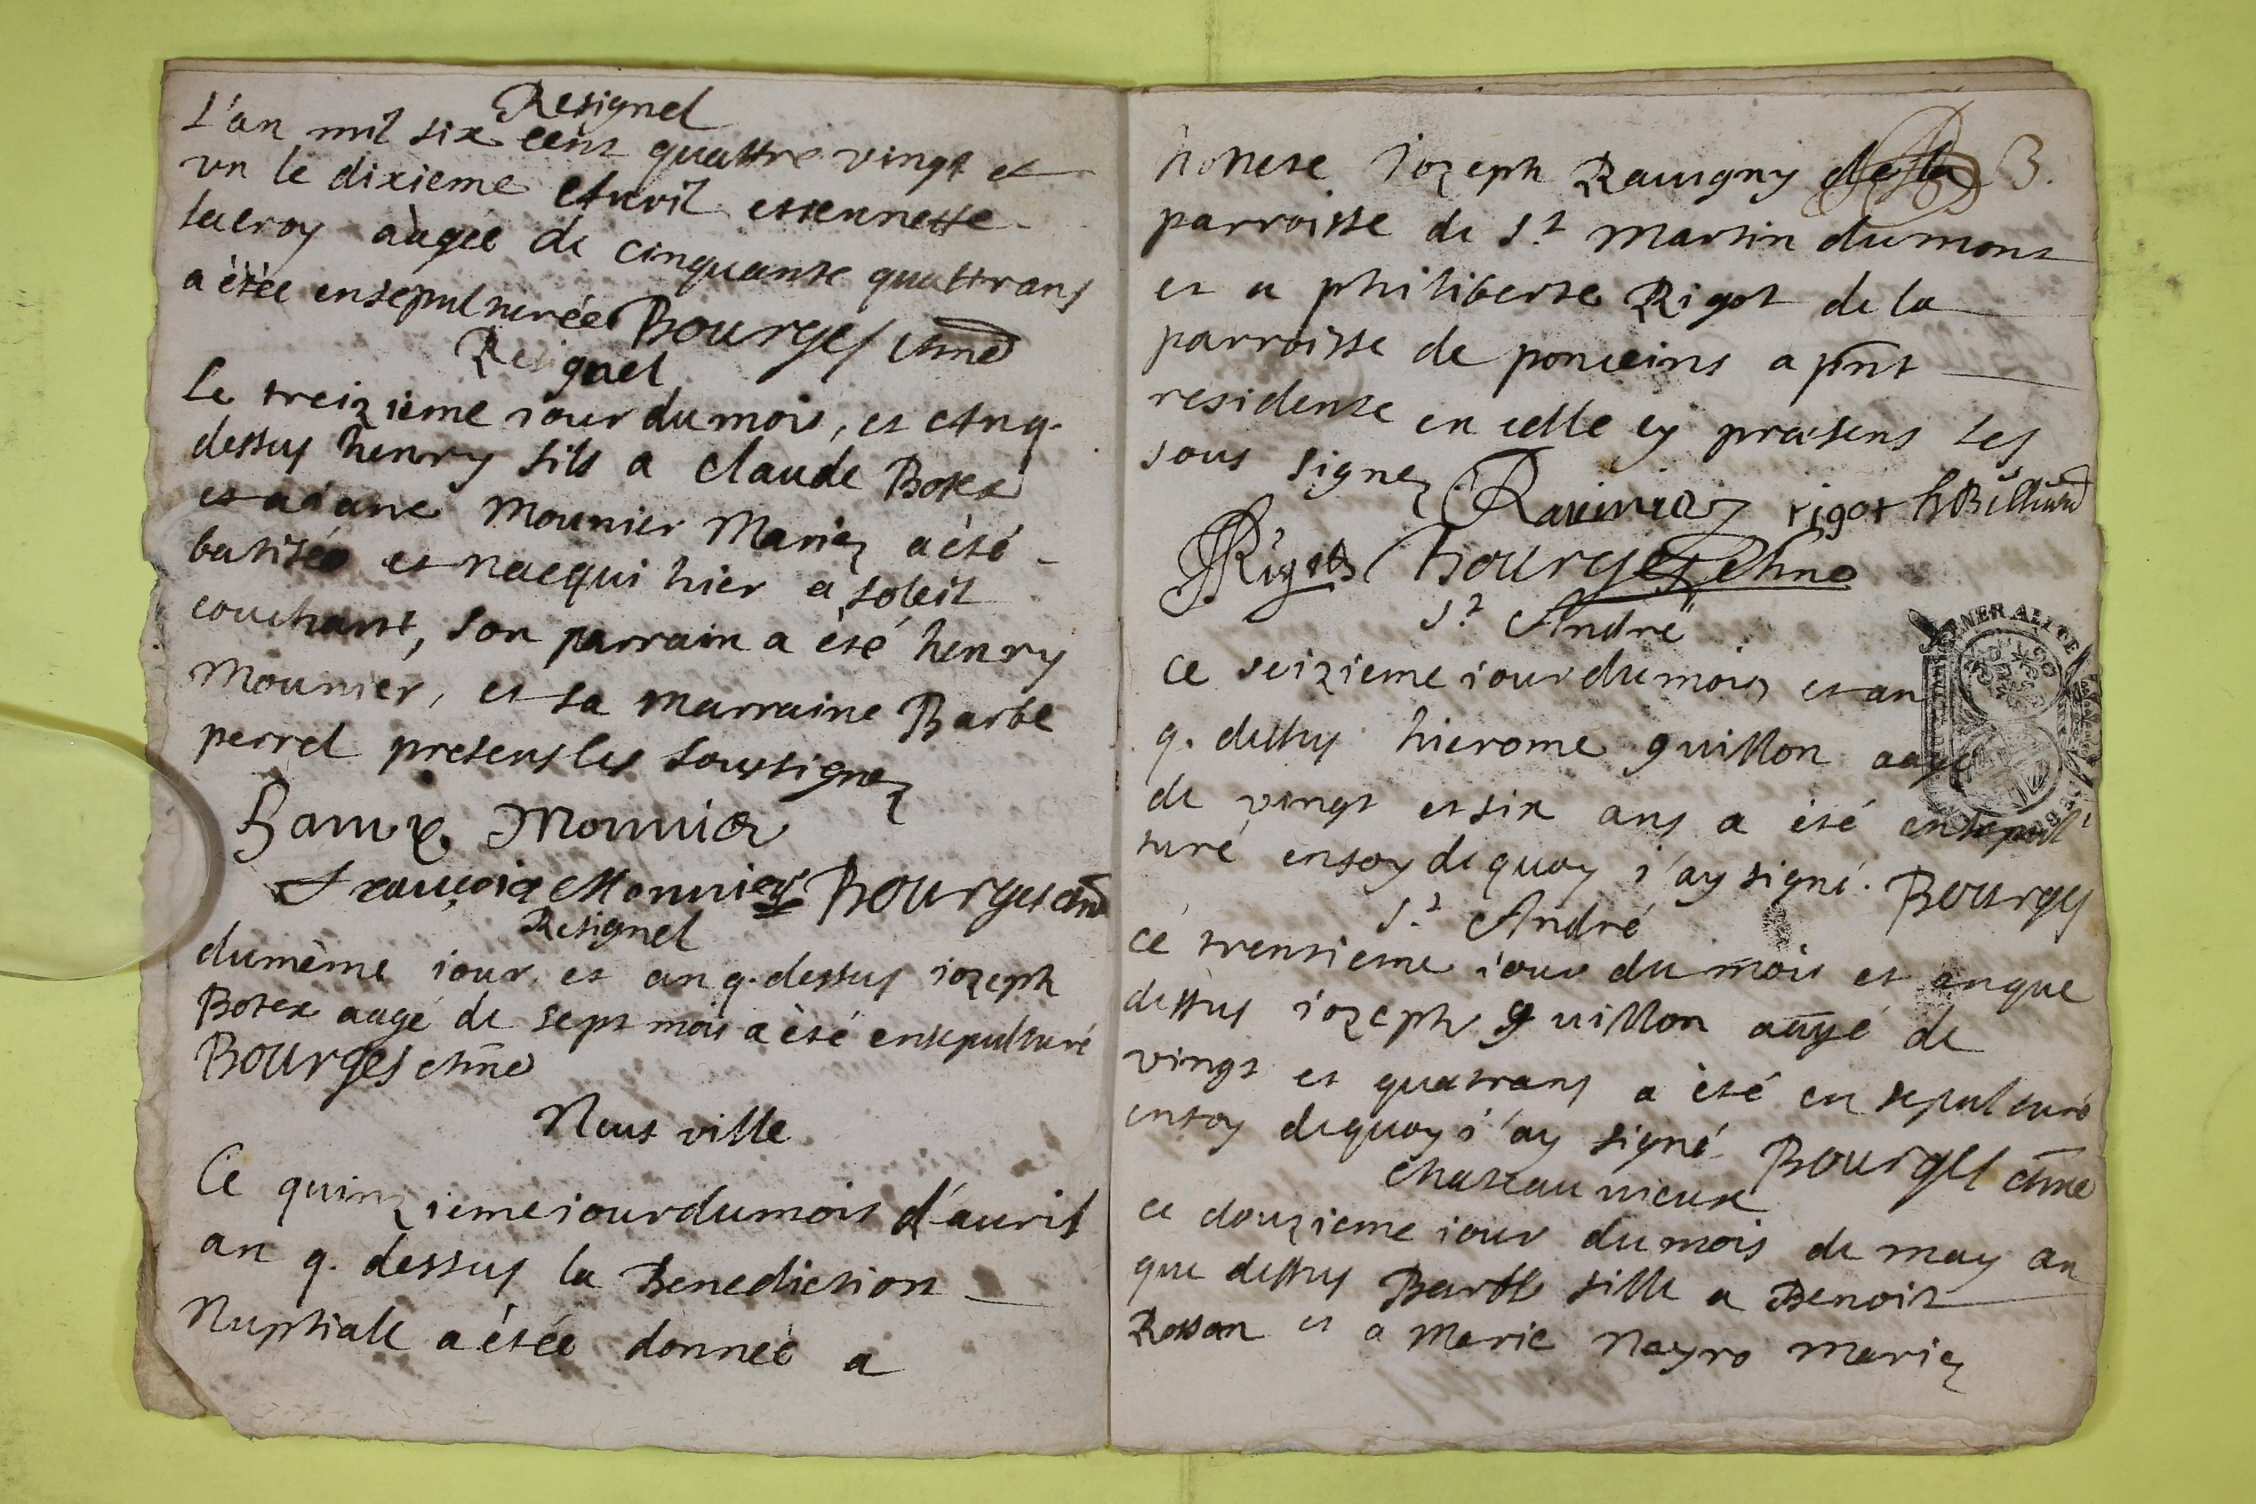 Resignel
L'an mil six cent quattre vingt et
un le dixieme Auril estiennette
lacroy aâgée de cinquante quattrans
a étée ensepulturée Bourges
Resignel
Le treizieme iour du mois, et an q.
dessus henry fils a Claude Botex
et a Mounier Mariez a été
batisé et nacqui hier a soleil
couchant, son parrain a été henry
Mounier, et sa marraine Barbe
perrel presens les soussignez
Mounier
François Monnier Bourges
Resignel
du même iour et an q. dessus iozeph
Botex aagé de sept mois a été ensepulturé
Bourges
Neusville
Ce quinzieme iour du mois d'auril
an q. dessus la Benediction
Nuptiale a étée donnée a
3.
honete iozeph Rauigny de la
parroisse de St Martin du mont
et a philiberte Rigot de la
parroisse de ponceins a pnt
residente en celle cy presens les
sous signez Rauiniez rigot
Rigot Bourges
St André
ce seizieme iour du mois et an
q. dessus hierome guillon aagé
de vingt et six ans a été ensepul
turé en foy de quoy i'ay signé. Bourges
St André
ce trentieme iour du mois et an que
dessus iozeph guillon aagé de
vingt et quatrans a été ensepulturé
en foy de quoy i'ay signé Bourges
Chateauvieux
ce douzieme iour du mois de may an
que dessus Barbe fille a Benoit
Rossan et a Marie Neyro mariez